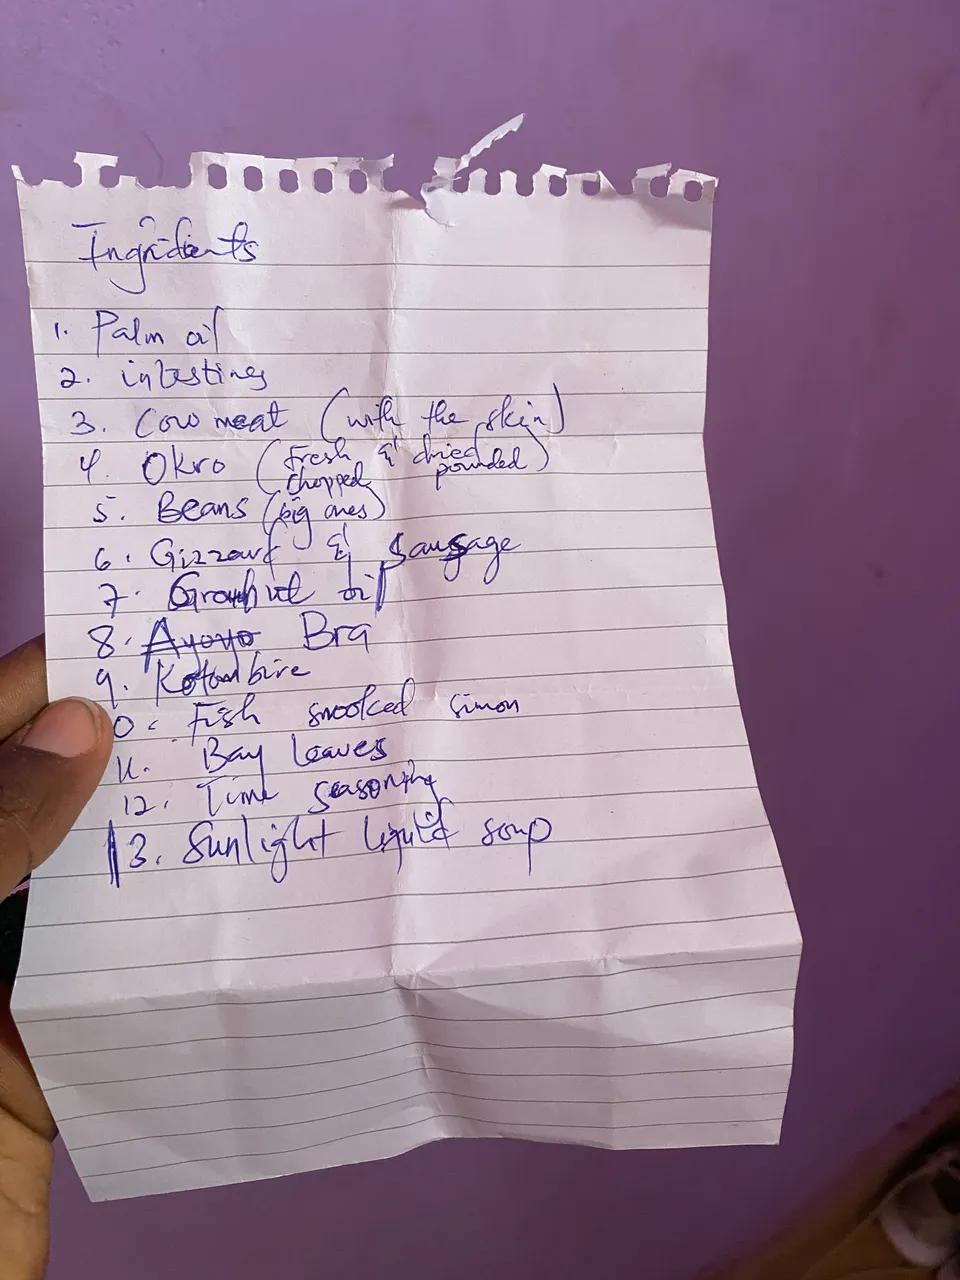 Ingridients
1. Palm oil
2. intestines
3. Cow meat (with the skin)
4. Okro (fresh & dried
chopped pounded)
5. Beans (big ones)
6. Gizzard & Sausage
7. Grouhnut oil
8. Ayoyo Bra
9. Kotombire
0. Fish smooked simon
11. Bay leaves
12. Time seasoning
13. Sunlight liquid soup